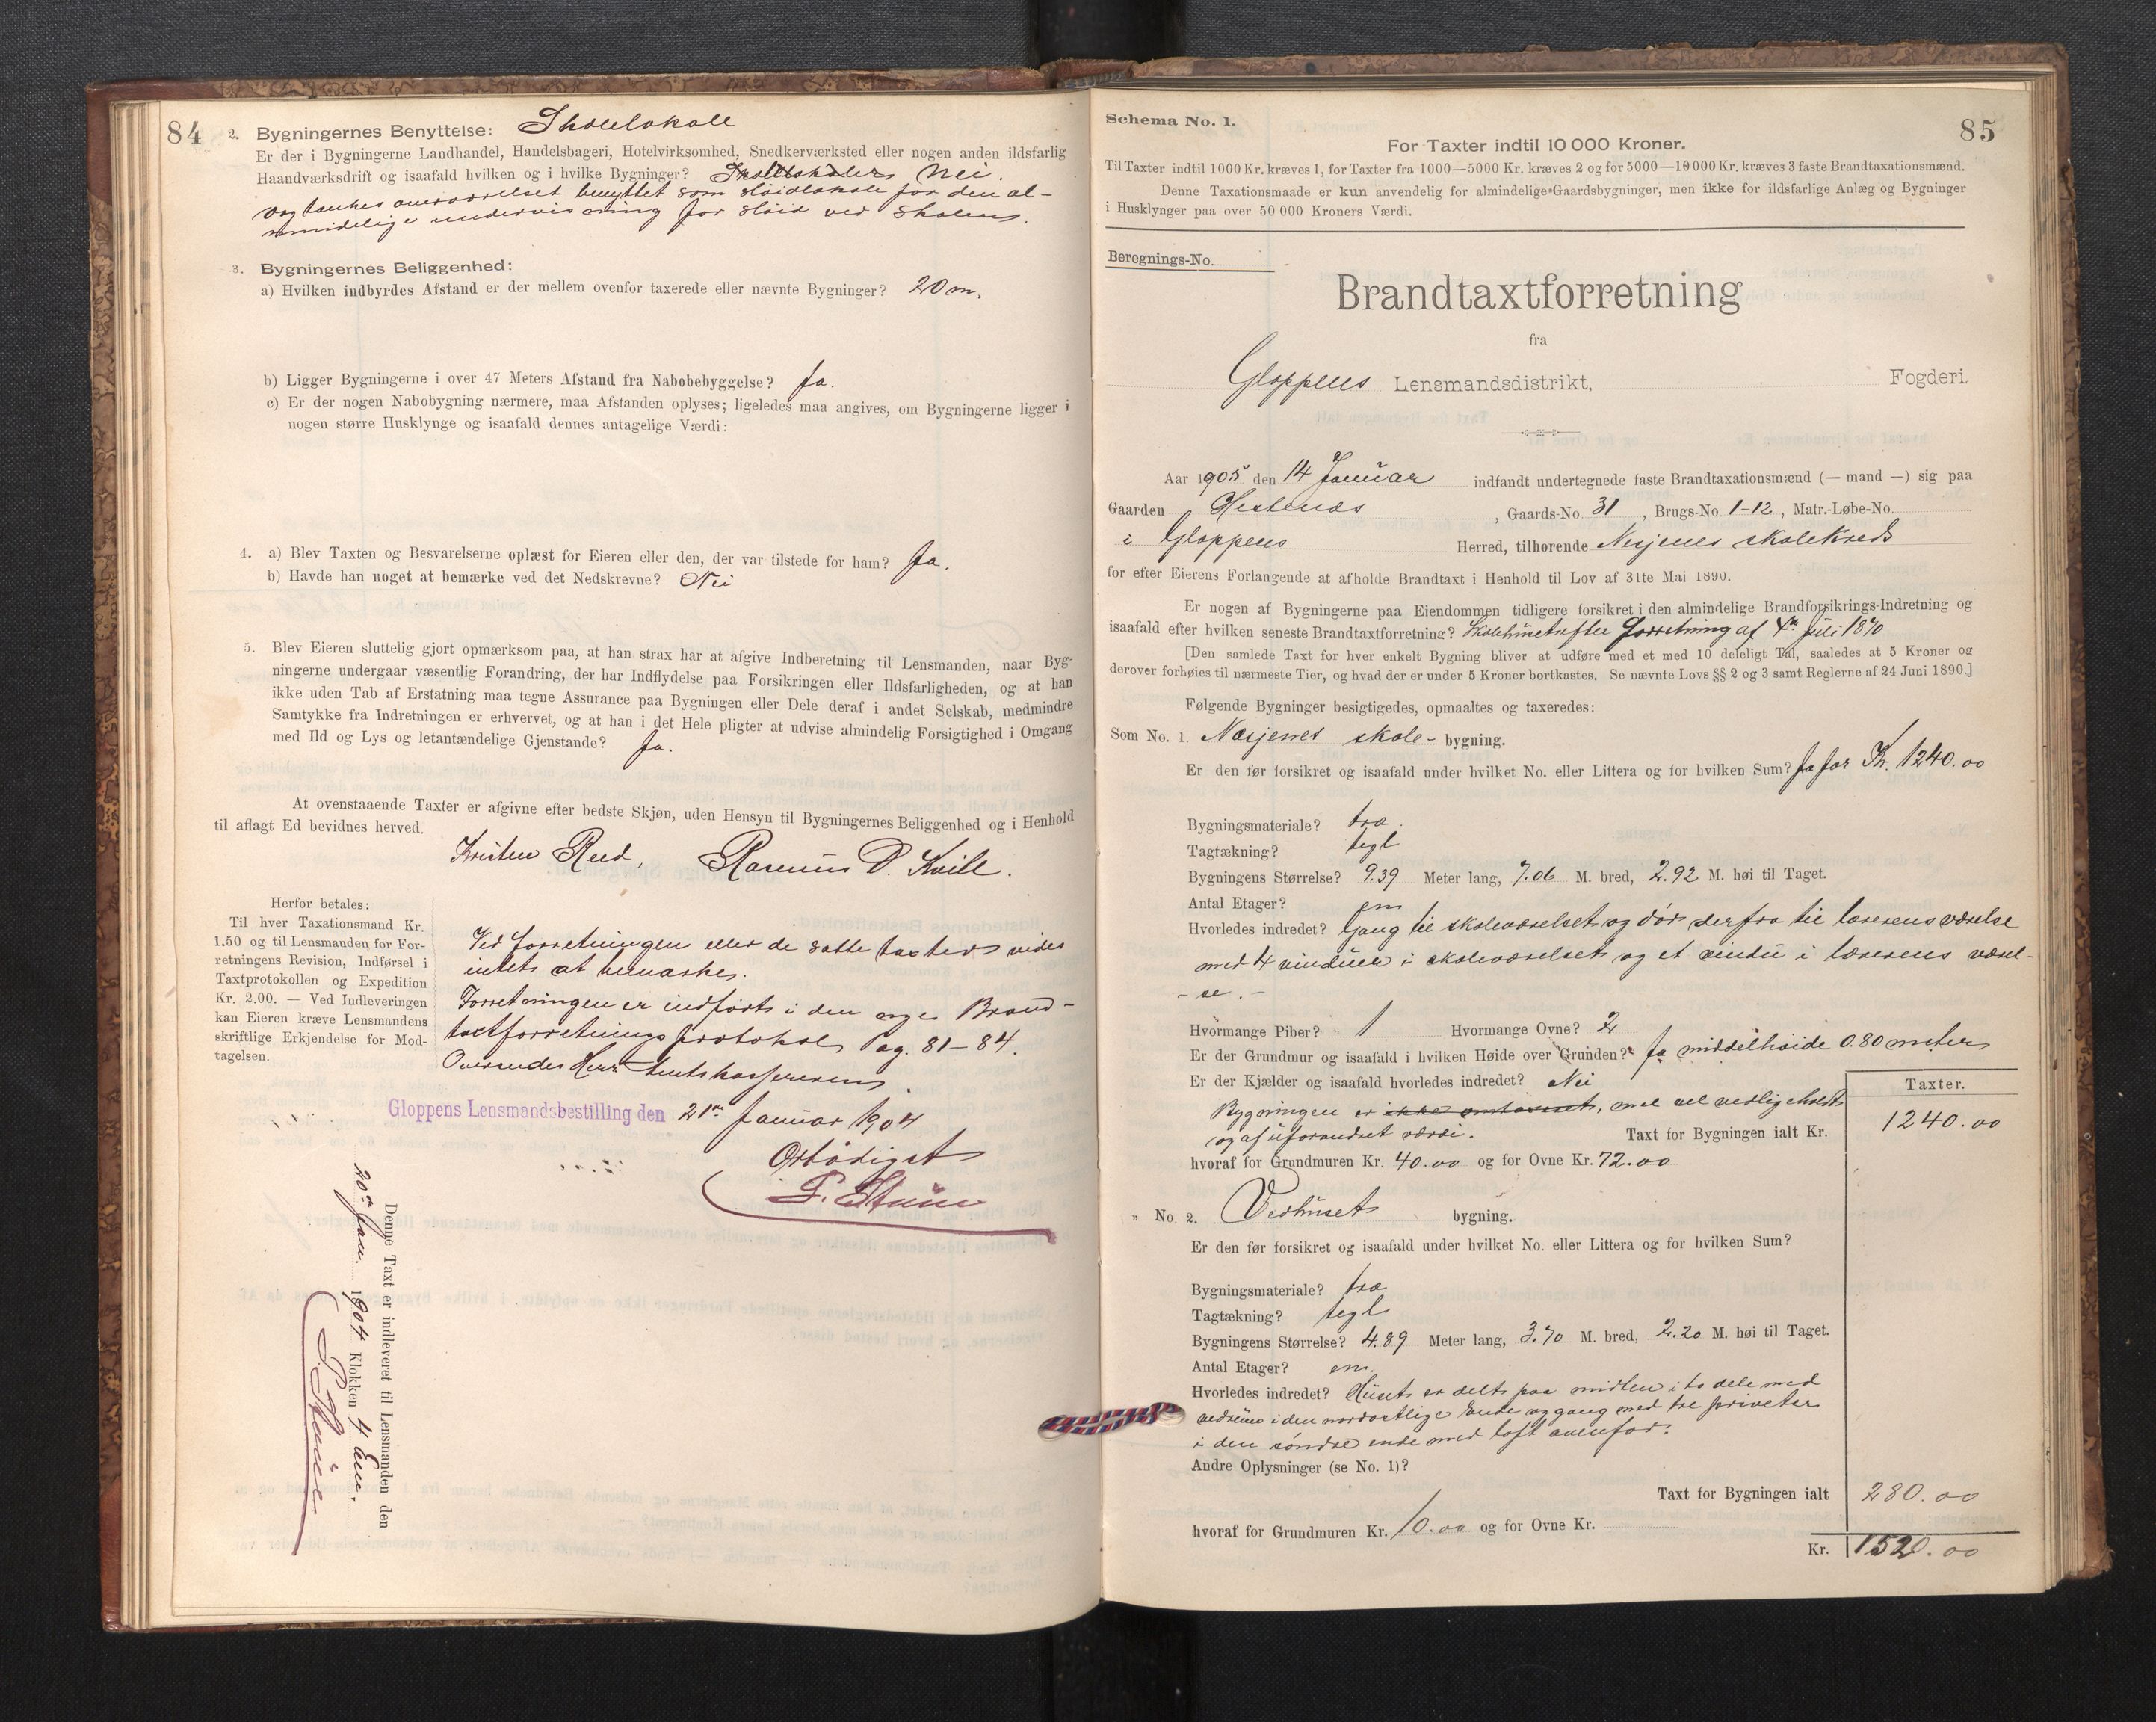 84
2. Bygningernes Benyttelse: Skolelokale
Er der i Bygningerne Landhandel, Handelsbageri, Hotelvirksomhed, Snedkerværksted eller nogen anden ildsfarlig
Haandværksdrift og isaafald hvilken og i hvilke Bygninger? Skolelokalers Nei.
og benyttet som slöidlokale for den al-
mindelige undervisning for slöid ved skolens.
3. Bygningernes Beliggenhed:
a) Hvilken indbyrdes Afstand er der mellem ovenfor taxerede eller nævnte Bygninger? 20 m.
b) Ligger Bygningerne i over 47 Meters Afstand fra Nabobebyggelse? Ja.
c) Er der nogen Nabobygning nærmere, maa Afstanden oplyses; ligeledes maa angives, om Bygningerne ligger i
nogen større Husklynge og isaafald dennes antagelige Værdi:
4. a) Blev Taxten og Besvarelserne oplæst for Eieren eller den, der var tilstede for ham? Ja.
b) Havde han noget at bemærke ved det Nedskrevne? Nei
5. Blev Eieren sluttelig gjort opmærksom paa, at han strax har at afgive Indberetning til Lensmanden, naar Byg-
ningerne undergaar væsentlig Forandring, der har Indflydelse paa Forsikringen eller Ildsfarligheden, og at han
ikke uden Tab af Erstatning maa tegne Assurance paa Bygningen eller Dele deraf i andet Selskab, medmindre
Samtykke fra Indretningen er erhvervet, og at han i det Hele pligter at udvise almindelig Forsigtighed i Omgang
med Ild og Lys og letantændelige Gjenstande? Ja.
At ovenstaaende Taxter er afgivne efter bedste Skjøn, uden Hensyn til Bygningernes Beliggenhed og i Henhold
til aflagt Ed bevidnes herved.
Kristen Reed, Rasmus D. Kvill.
Herfor betales:
Til hver Taxationsmand Kr.
1.50 og til Lensmanden for For-
retningens Revision, Indførsel i
Taxtprotokollen og Expedition
Kr. 2.00. — Ved Indleveringen
kan Eieren kræve Lensmandens
skriftlige Erkjendelse for Mod-
tagelsen.
Ved forretningen eller de satte taxter vides
intet at bemærke.
Forretningen er indfört i den nye Brand-
taxtforretningsprotokol Pag. 81–84.
Oversendes Herr Amtskassereren.
Gloppens Lensmandsbestilling den 21de Januar 1904
Ærbödigst
P. Stüwe
Denne Taxt er indleveret til Lensmanden den
20de Jan. 1904 Klokken 4 Em.
P. Stüwe
Schema No. 1.
85
For Taxter indtil 10 000 Kroner.
Til Taxter indtil 1000 Kr. kræves 1, for Taxter fra 1000—5000 Kr. kræves 2 og for 5000—10000 Kr. kræves 3 faste Brandtaxationsmænd.
Denne Taxationsmaade er kun anvendelig for almindelige Gaardsbygninger, men ikke for ildsfarlige Anlæg og Bygninger
i Husklynger paa over 50 000 Kroners Værdi.
Beregnings-No.
Brandtaxtforretning
fra
Gloppens Lensmandsdistrikt, Fogderi.
Aar 1905 den 14 Januar indfandt undertegnede faste Brandtaxationsmænd (— mand —) sig paa
Gaarden Hestenæs, Gaards-No. 31, Brugs-No. 1-12, Matr.-Løbe-No.
i Gloppens Herred, tilhørende Nesjenes skolekreds
for efter Eierens Forlangende at afholde Brandtaxt i Henhold til Lov af 31te Mai 1890.
Er nogen af Bygningerne paa Eiendommen tidligere forsikret i den almindelige Brandforsikrings-Indretning og
isaafald efter hvilken seneste Brandtaxtforretning? Skolehuset efter forretning af 4de Juli 1870
[Den samlede Taxt for hver enkelt Bygning bliver at udføre med et med 10 deleligt Tal, saaledes at 5 Kroner og
derover forhøies til nærmeste Tier, og hvad der er under 5 Kroner bortkastes. Se nævnte Lovs §§ 2 og 3 samt Reglerne af 24 Juni 1890.]
Følgende Bygninger besigtigedes, opmaaltes og taxeredes:
Som No. 1. Næsjenes skole- bygning.
Er den før forsikret og isaafald under hvilket No. eller Littera og for hvilken Sum? Ja for Kr. 1240.00
Bygningsmateriale? træ.
Tagtækning? tegl
Bygningens Størrelse? 9.39 Meter lang, 7.06 M. bred, 2.92 M. høi til Taget.
Antal Etager? en
Hvorledes indredet? Gang til skoleværelset og dör derfra til lærerens værelse
med 4 vinduer i skoleværelset og et vindu i lærerens værel-
- se. -
Hvormange Piber? 1 Hvormange Ovne? 2
Er der Grundmur og isaafald i hvilken Høide over Grunden? Ja middelhöide 0.80 meter
Er der Kjælder og isaafald hvorledes indredet? Nei
Taxter.
Bygningen er ikke omtaxeret, men vel vedligeholdt
og af uforandret værdi.
Taxt for Bygningen ialt Kr. 1240.00
hvoraf for Grundmuren Kr. 40.00 og for Ovne Kr. 72.00
„ No. 2. Vedhuset bygning.
Er den før forsikret og isaafald under hvilket No. eller Littera og for hvilken Sum?
Bygningsmateriale? træ
Tagtækning? tegl
Bygningens Størrelse? 4.89 Meter lang, 3.70 M. bred, 2.20 M. høi til Taget.
Antal Etager? en.
Hvorledes indredet? Huset er delt paa midten i to dele med
vedrum i den nordostlige Ende og gang med tre priveter
i den söndre ende med loft ovenfor.
Andre Oplysninger (se No. 1)?
Taxt for Bygningen ialt 280.00
hvoraf for Grundmuren Kr. 10.00 og for Ovne Kr.
Kr. 1520.00